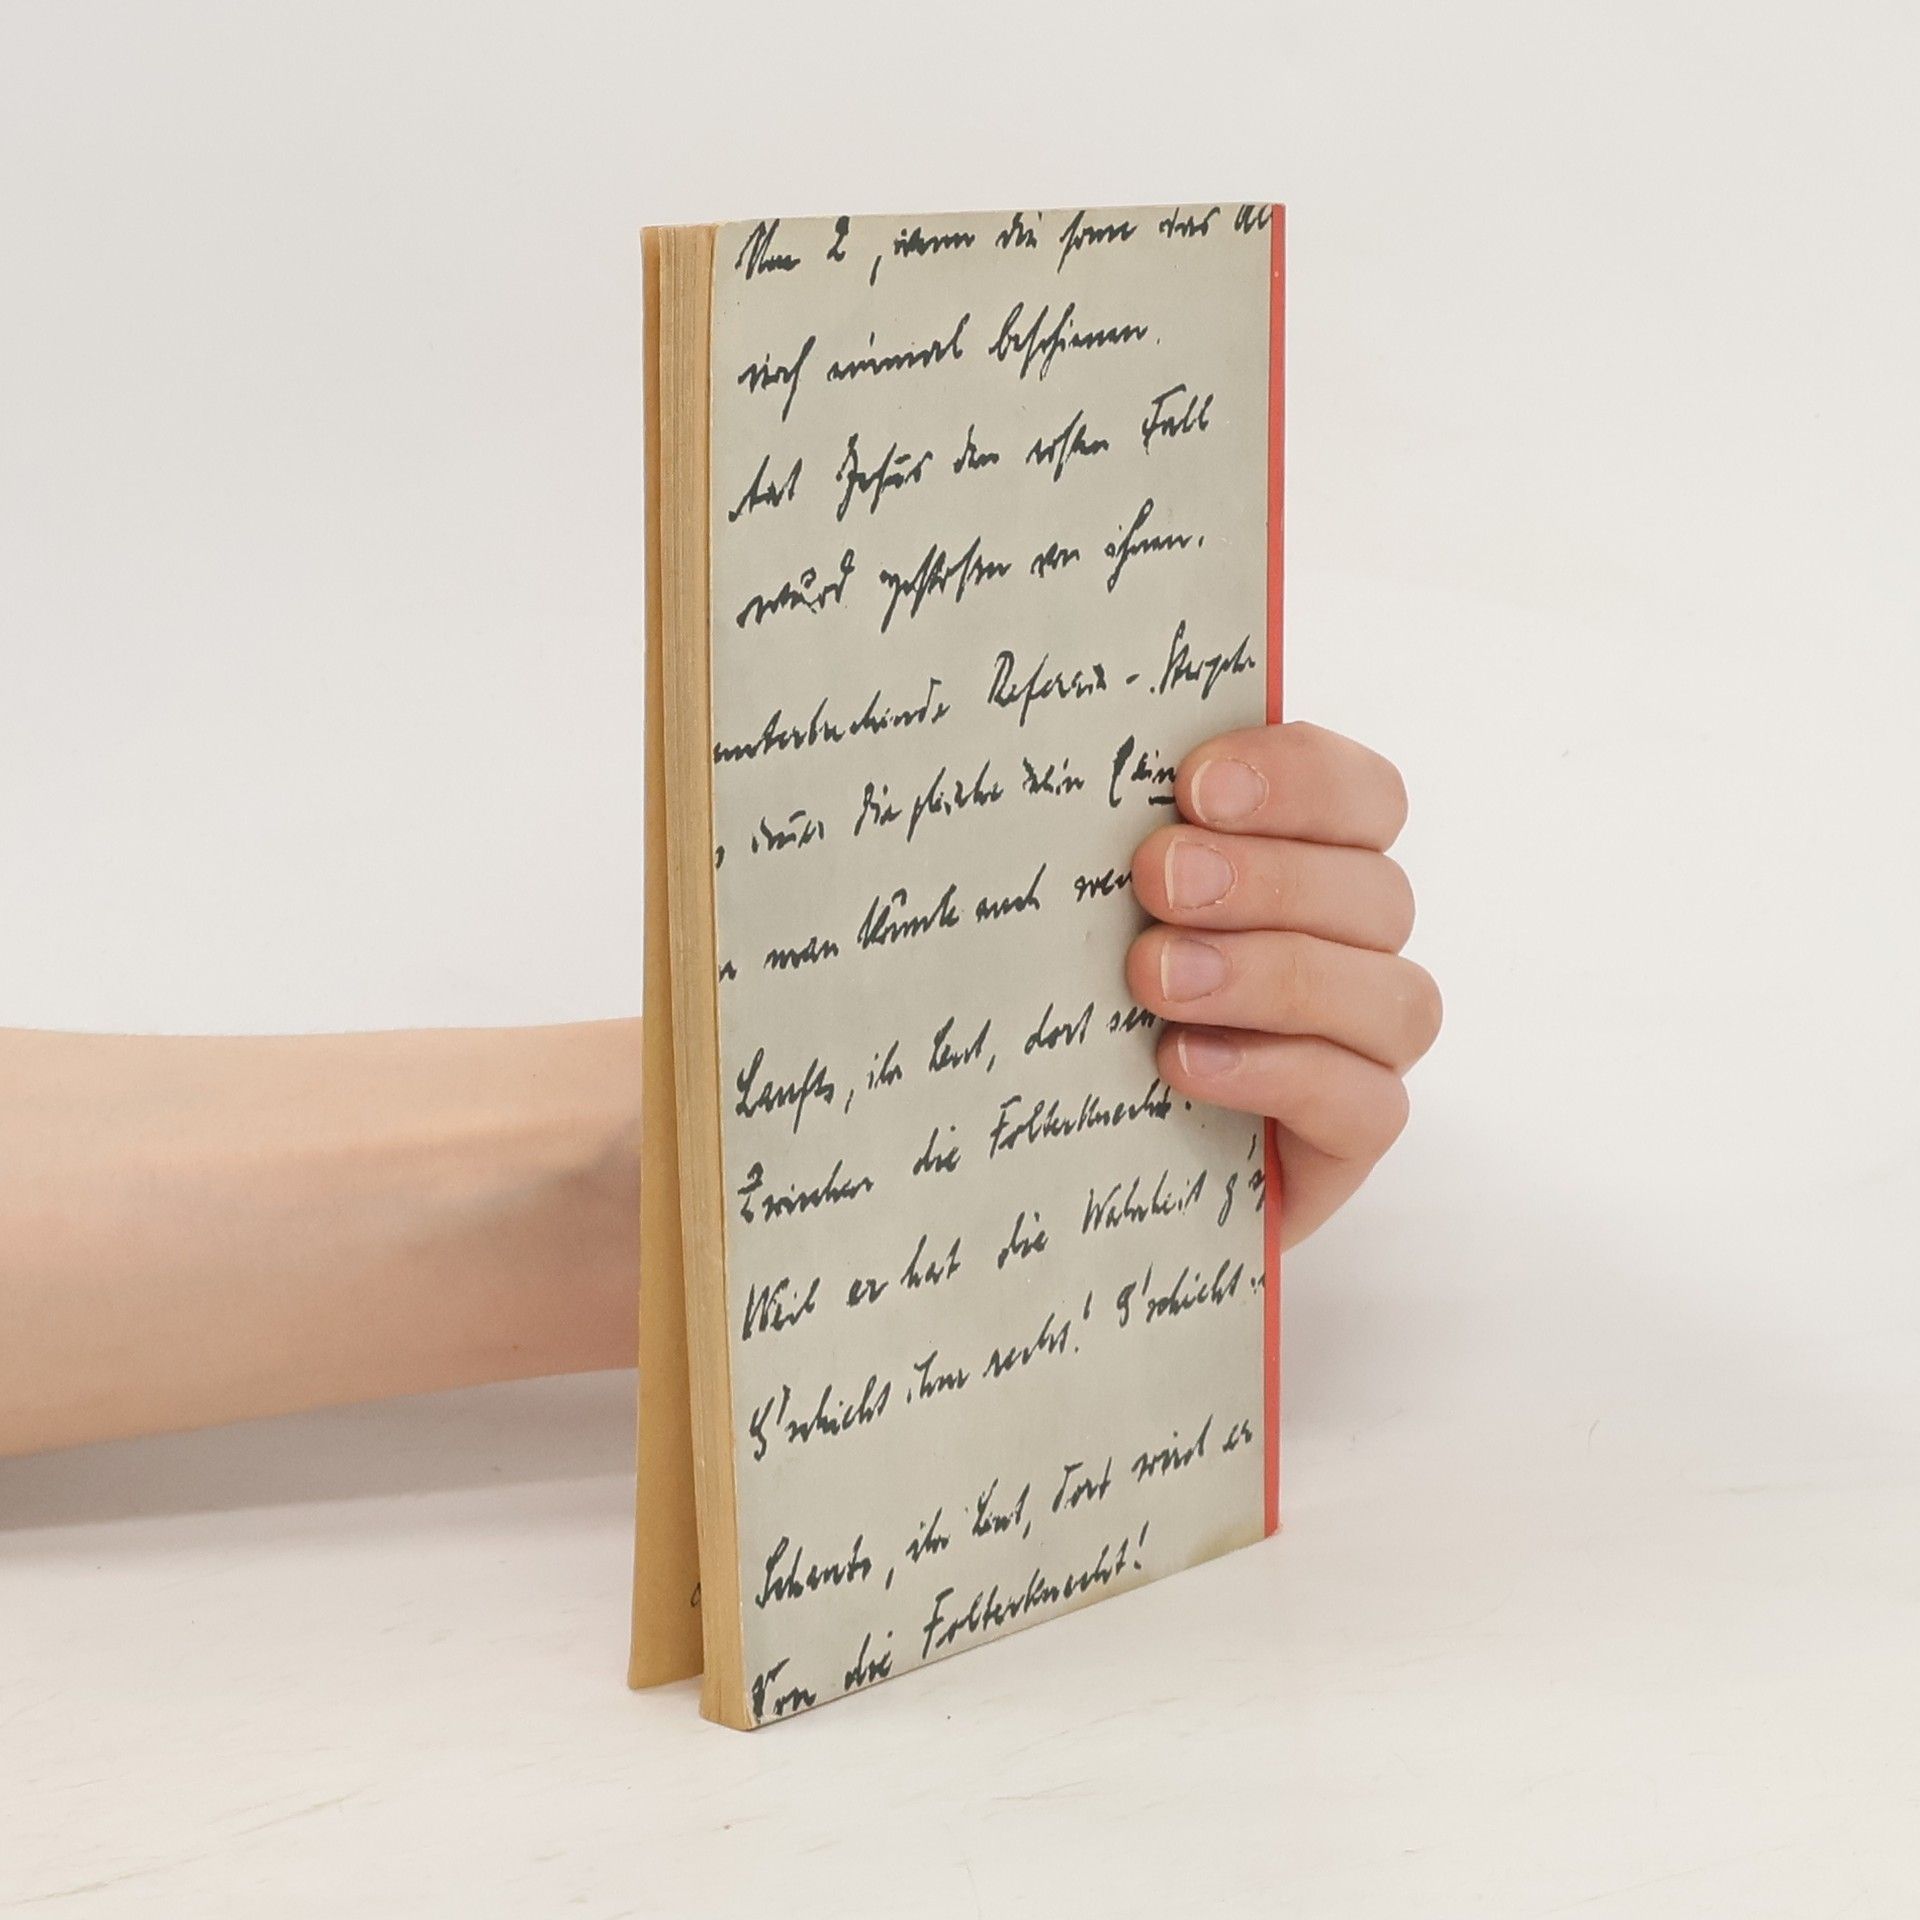 Um 2, wenn die sonne das
noch einmal beschienen.
tat Jesus den ersten Fall
wurd gestosen von ihnen.
unterbrechende Refrain -
die gleiche sein
man könnte auch
Laufts, ihr Leut, dort
Zwischen die Folterknecht!
Weil er hat die Wahrheit
G'schicht ihm recht! G'schicht
Schauts, ihr Leut, dort wird er
Von die Folterknecht!